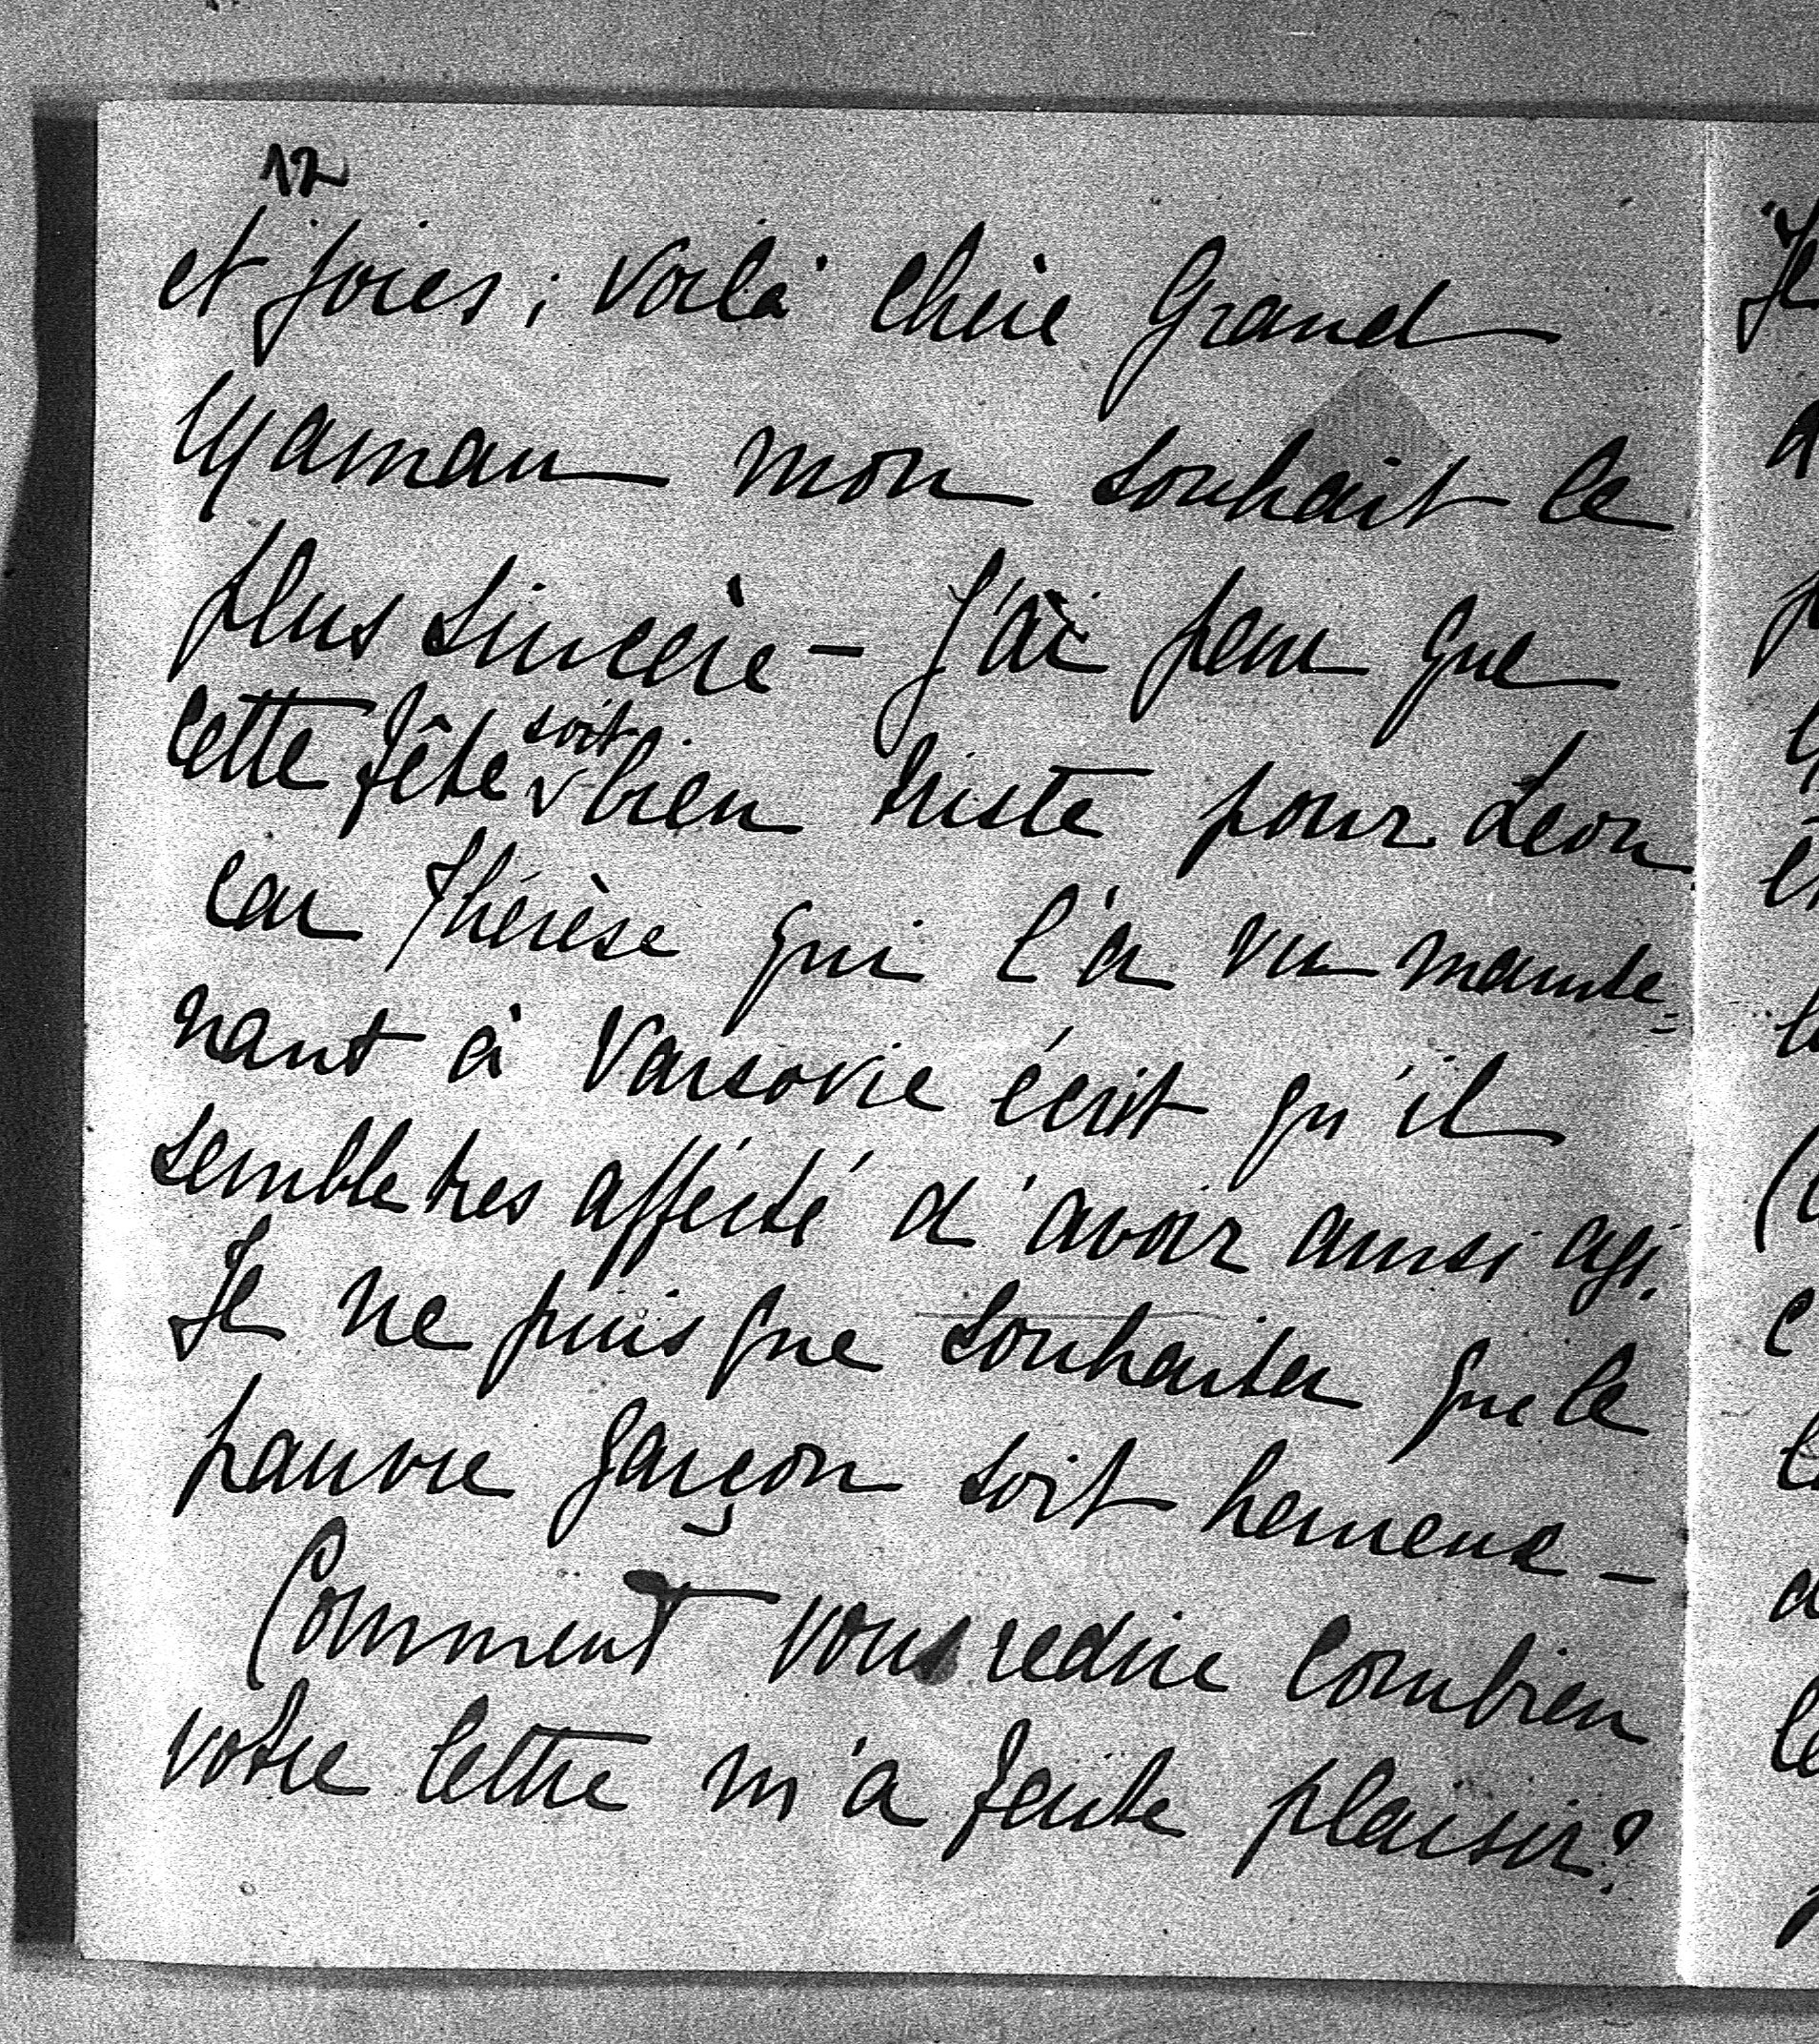 12
et joies; voilà chère Grand
Maman mon souhait le
plus sincère - J'ai peur que
cette fête soit bien triste pour Léon
car Thérèse qui l'a vu mainte=
nant à Varsovie écrit qu'il
semble tres affecté d'avoir ainsi agi.
Je ne puis que souhaiter que le
pauvre garçon soit heureux -
Comment vous redire combien
votre lettre m'a faite plaisir?